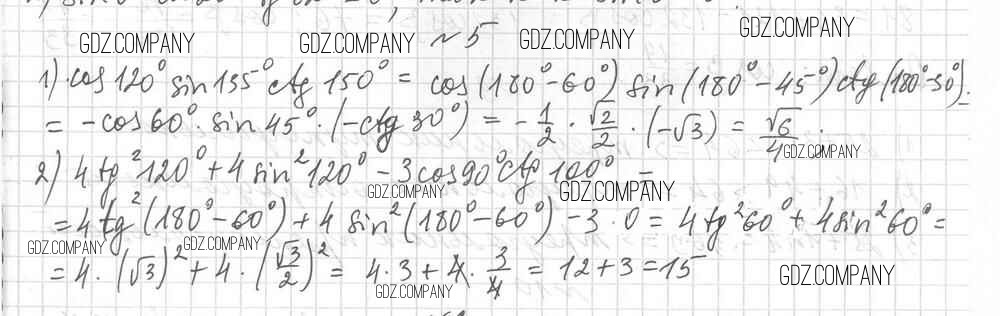 GDZ.COMPANY GDZ.COMPANY №5 GDZ.COMPANY GDZ.COMPANY
1) cos 120° sin 135° ctg 150° = cos(180°-60°) sin(180°-45°) ctg(180°-30°) =
= -cos 60° · sin 45° · (-ctg 30°) = -1/2 · √2/2 · (-√3) = √6/4.
GDZ.COMPANY
2) 4 tg²120° + 4 sin²120° - 3 cos 90° ctg 100° =
GDZ.COMPANY GDZ.COMPANY
= 4 tg²(180°-60°) + 4 sin²(180°-60°) - 3 · 0 = 4 tg²60° + 4 sin²60° =
GDZ.COMPANY GDZ.COMPANY
= 4 · (√3)² + 4 · (√3/2)² = 4 · 3 + 4 · 3/4 = 12 + 3 = 15
GDZ.COMPANY GDZ.COMPANY